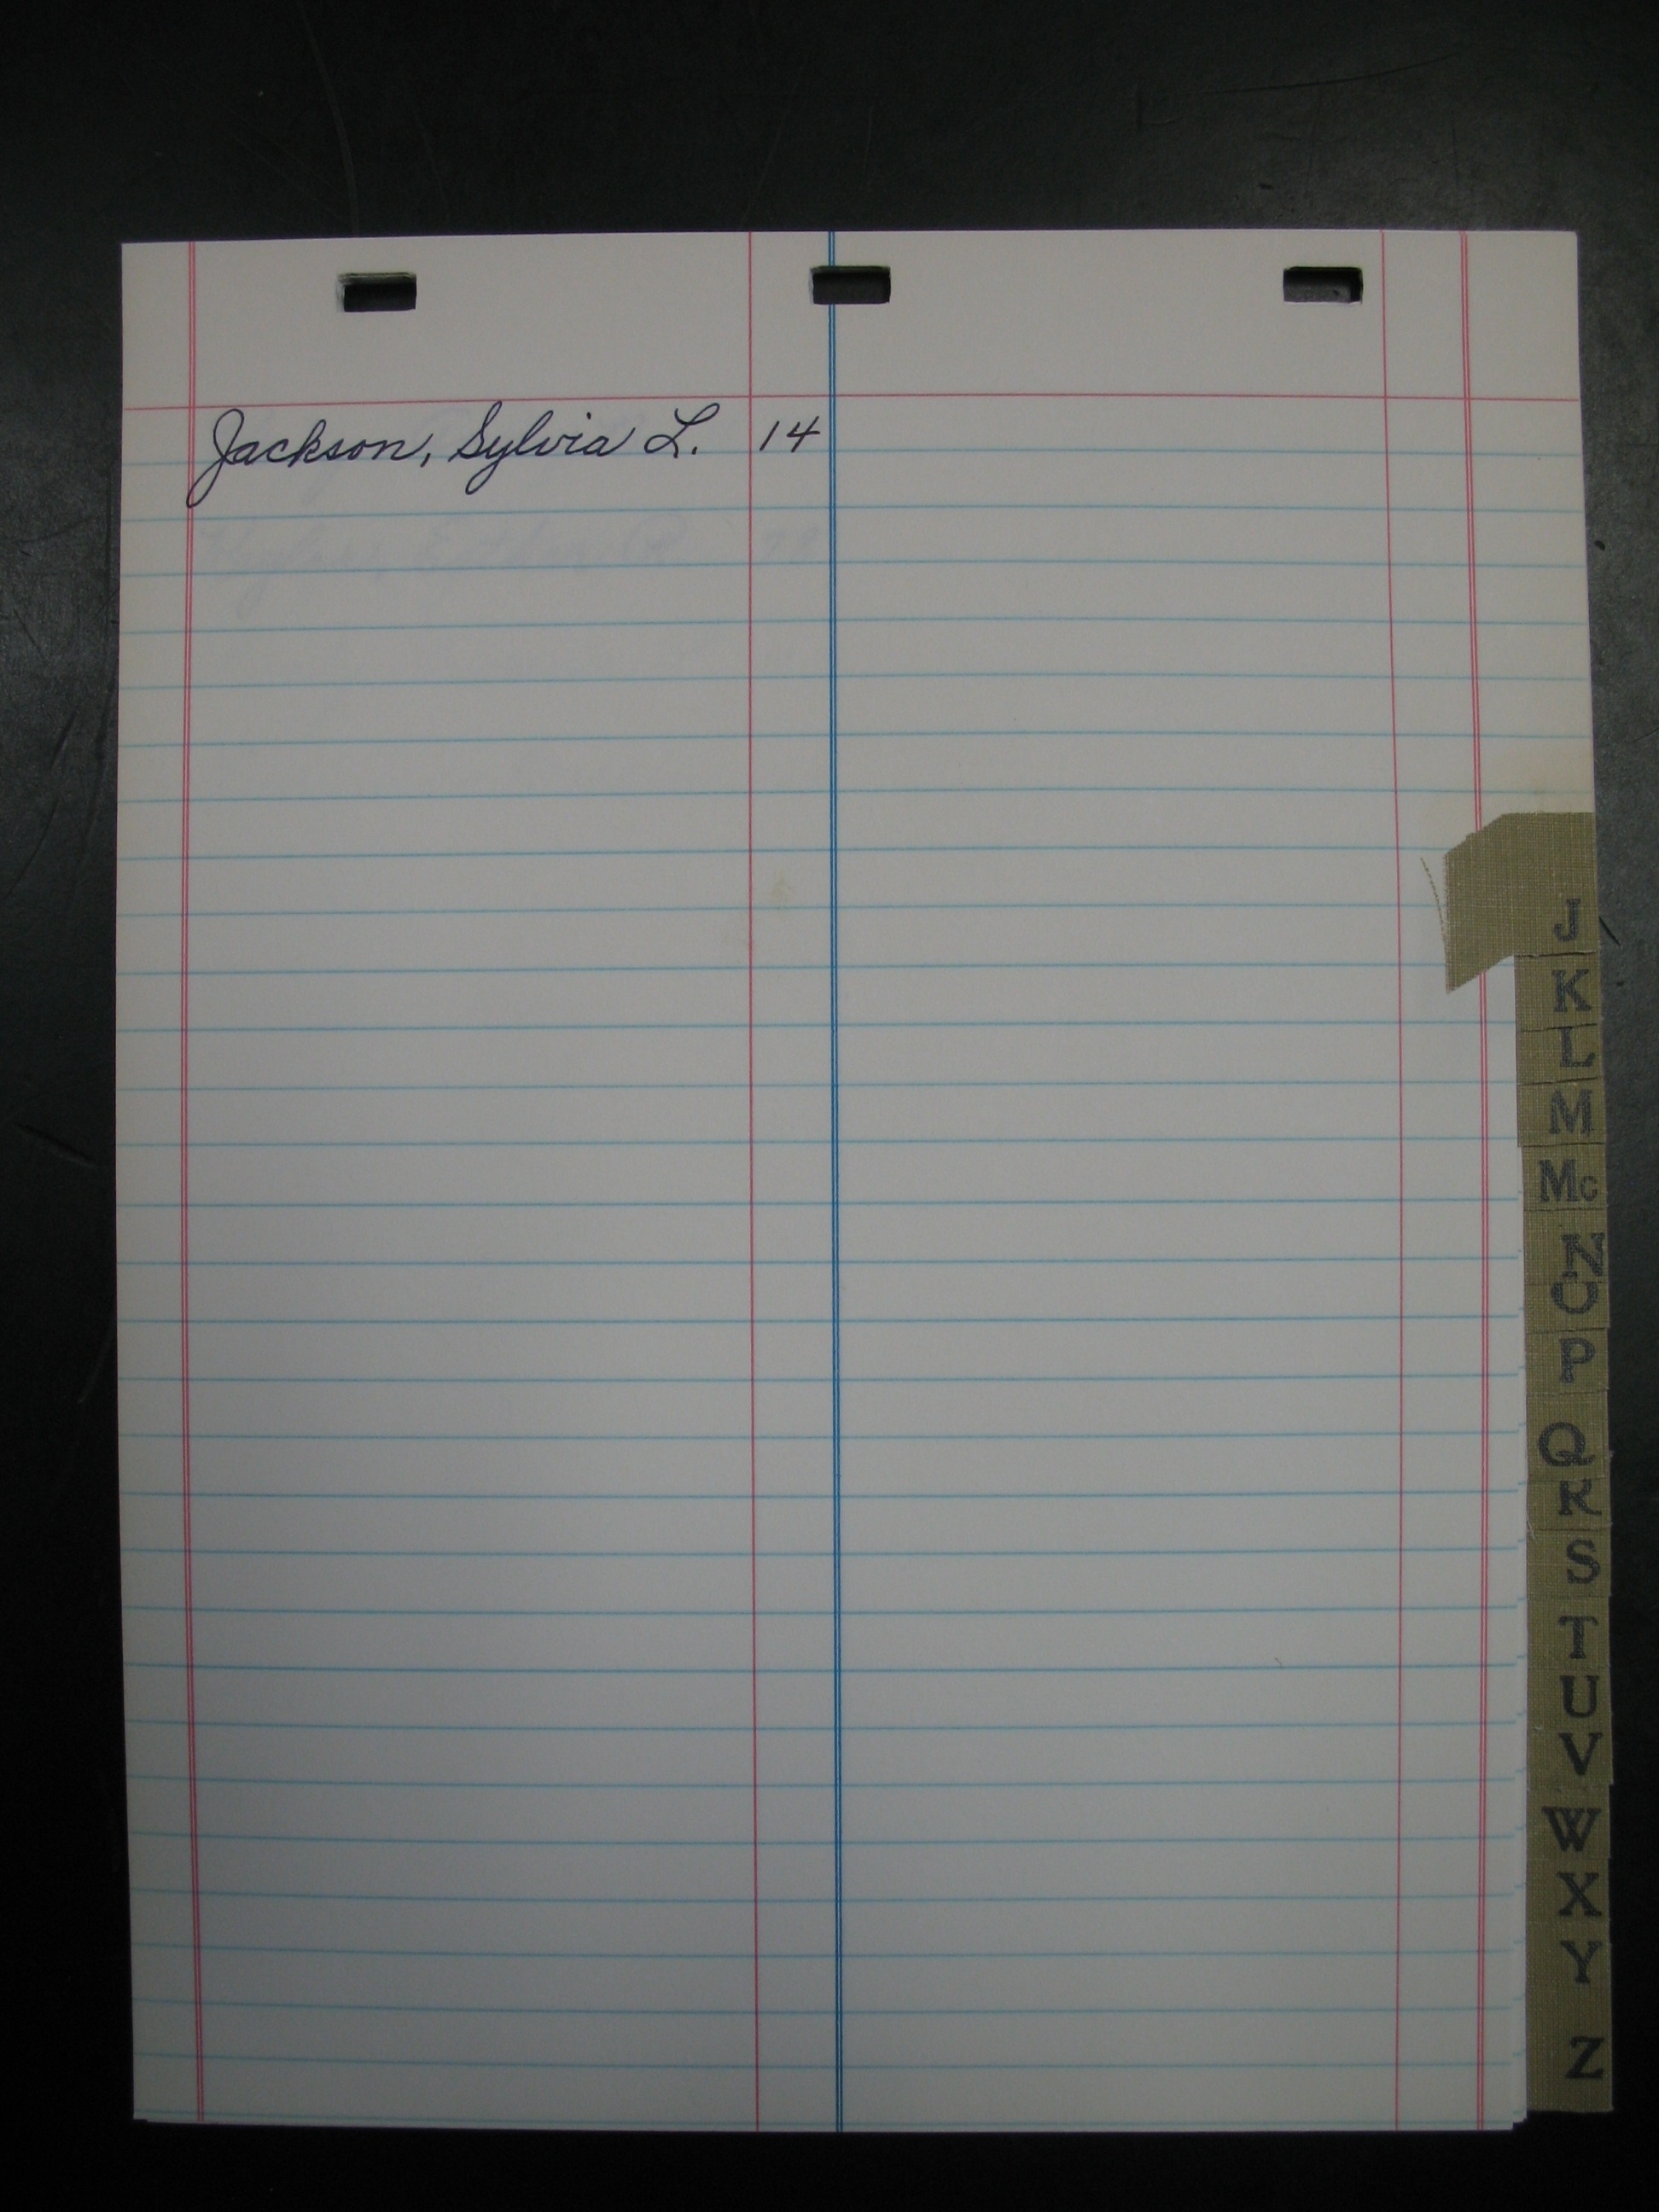 Jackson, Sylvia L. 14
J
K
L
M
Mc
N
O
P
Q
R
S
T
U
V
W
X
Y
Z